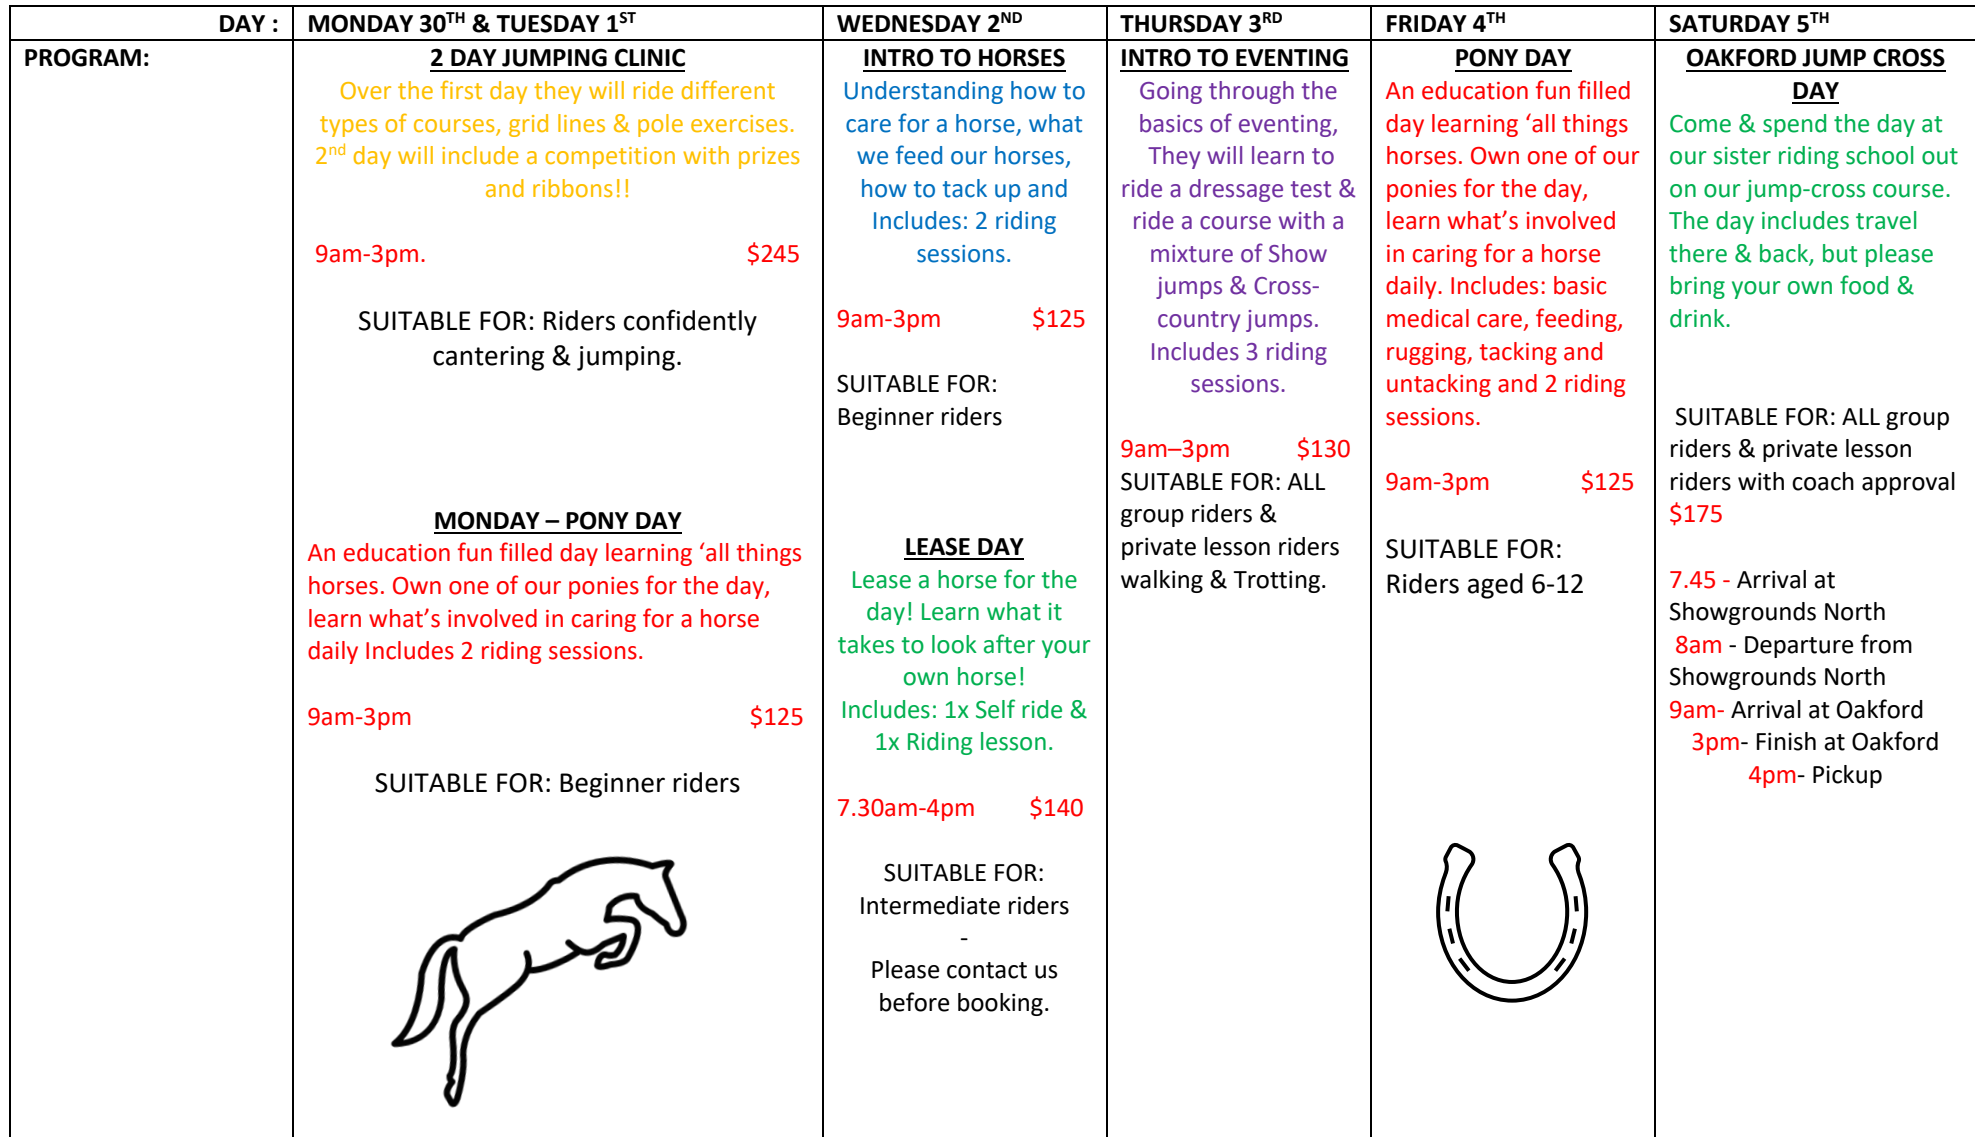 DAY :
MONDAY 30TH & TUESDAY 1ST
WEDNESDAY 2ND
THURSDAY 3RD
FRIDAY 4TH
SATURDAY 5TH
PROGRAM:
2 DAY JUMPING CLINIC
Over the first day they will ride different
types of courses, grid lines & pole exercises.
2nd day will include a competition with prizes
and ribbons!!
9am-3pm. $245
SUITABLE FOR: Riders confidently
cantering & jumping.
MONDAY – PONY DAY
An education fun filled day learning ‘all things
horses. Own one of our ponies for the day,
learn what’s involved in caring for a horse
daily Includes 2 riding sessions.
9am-3pm $125
SUITABLE FOR: Beginner riders
INTRO TO HORSES
Understanding how to
care for a horse, what
we feed our horses,
how to tack up and
Includes: 2 riding
sessions.
9am-3pm $125
SUITABLE FOR:
Beginner riders
LEASE DAY
Lease a horse for the
day! Learn what it
takes to look after your
own horse!
Includes: 1x Self ride &
1x Riding lesson.
7.30am-4pm $140
SUITABLE FOR:
Intermediate riders
-
Please contact us
before booking.
INTRO TO EVENTING
Going through the
basics of eventing,
They will learn to
ride a dressage test &
ride a course with a
mixture of Show
jumps & Cross-
country jumps.
Includes 3 riding
sessions.
9am–3pm $130
SUITABLE FOR: ALL
group riders &
private lesson riders
walking & Trotting.
PONY DAY
An education fun filled
day learning ‘all things
horses. Own one of our
ponies for the day,
learn what’s involved
in caring for a horse
daily. Includes: basic
medical care, feeding,
rugging, tacking and
untacking and 2 riding
sessions.
9am-3pm $125
SUITABLE FOR:
Riders aged 6-12
OAKFORD JUMP CROSS
DAY
Come & spend the day at
our sister riding school out
on our jump-cross course.
The day includes travel
there & back, but please
bring your own food &
drink.
SUITABLE FOR: ALL group
riders & private lesson
riders with coach approval
$175
7.45 - Arrival at
Showgrounds North
8am - Departure from
Showgrounds North
9am- Arrival at Oakford
3pm- Finish at Oakford
4pm- Pickup